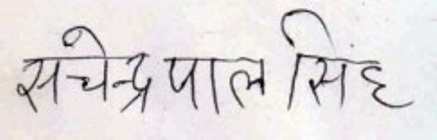 सचेन्द्र पाल सिंह